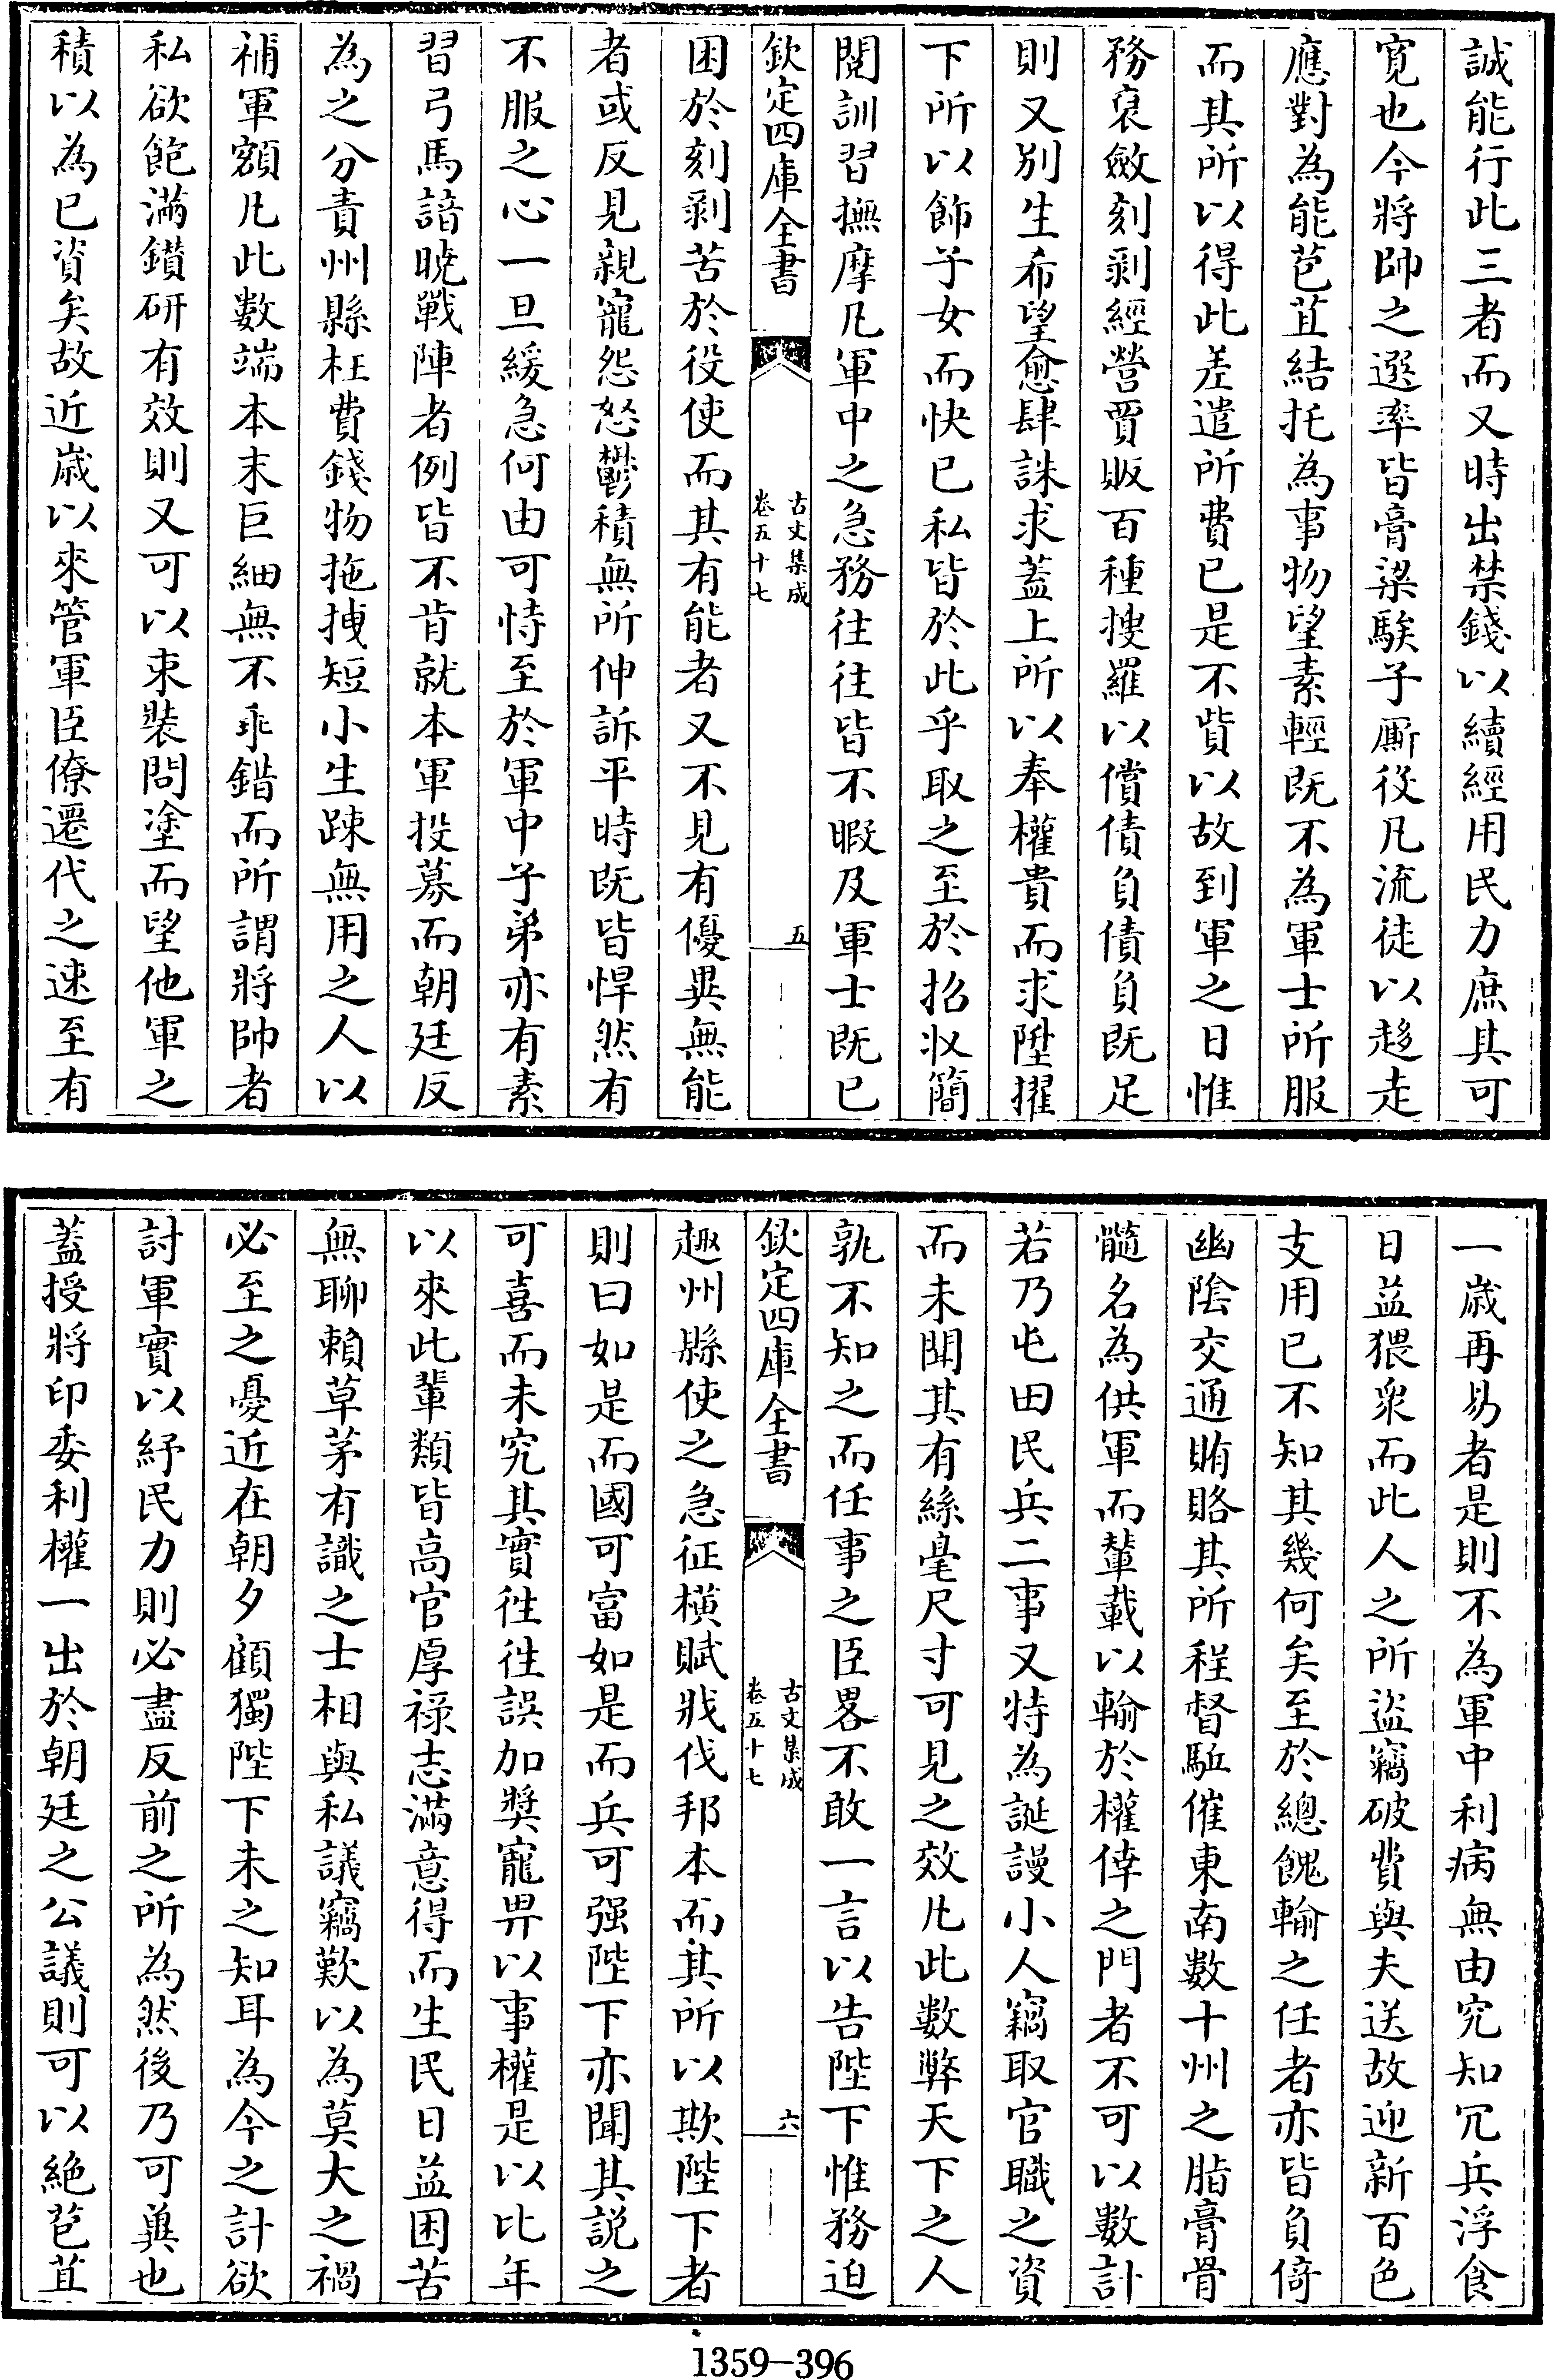 誠能行此三者而又時出禁錢以續經用民力庶其可
寛也今將帥之選率皆膏粱騃子厮役凡流徒以趍走
應對為能苞苴結托為事物望素輕既不為軍士所服
而其所以得此差遣所費已是不貲以故到軍之日惟
務裒斂刻剥經營賈販百種搜羅以償債負債負既足
則又别生希望愈肆誅求蓋上所以奉權貴而求陞擢
下所以飾子女而快已私皆於此乎取之至於招收簡
閲訓習撫摩凡軍中之急務往往皆不暇及軍士既已
欽定四庫全書
古文集成
卷五十七
五
困於刻剥苦於役使而其有能者又不見有優異無能
者或反見親寵怨怒鬱積無所伸訴平時既皆悍然有
不服之心一旦緩急何由可恃至於軍中子弟亦有素
習弓馬諳曉戰陣者例皆不肯就本軍投募而朝廷反
為之分責州縣枉費錢物拖拽短小生踈無用之人以
補軍額凡此數端本末巨細無不乖錯而所謂將帥者
私欲飽滿鑚研有效則又可以束裝問塗而望他軍之
積以為已資矣故近歲以來管軍臣僚遷代之速至有
一歲再易者是則不為軍中利病無由究知冗兵浮食
日益猥衆而此人之所盜竊破費與夫送故迎新百色
支用已不知其幾何矣至於總餽輸之任者亦皆負倚
幽陰交通賄賂其所程督駈催東南數十州之脂膏骨
髓名為供軍而輦載以輸於權倖之門者不可以數計
若乃屯田民兵二事又特為誕謾小人竊取官職之資
而未聞其有絲毫尺寸可見之效凡此數弊天下之人
孰不知之而任事之臣畧不敢一言以告陛下惟務迫
欽定四庫全書
古文集成
卷五十七
六
趣州縣使之急征橫賦戕伐邦本而其所以欺陛下者
則曰如是而國可富如是而兵可强陛下亦聞其説之
可喜而未究其實徃徃誤加奬寵畀以事權是以比年
以來此輩類皆高官厚祿志滿意得而生民日益困苦
無聊賴草茅有識之士相與私議竊歎以為莫大之禍
必至之憂近在朝夕顧獨陛下未之知耳為今之計欲
討軍實以紓民力則必盡反前之所為然後乃可冀也
蓋授將印委利權一出於朝廷之公議則可以絶苞苴
1359-396